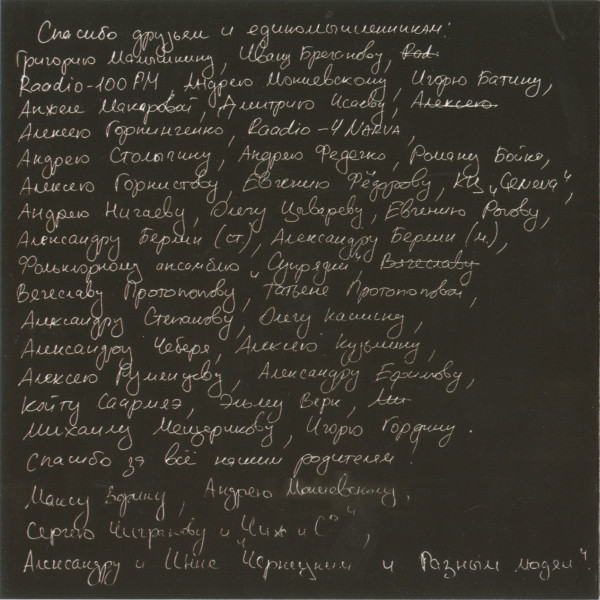 Спасибо друзьям и единомышленникам:
Григорию Малышкину, Ивану
Raadio-100 FM, Андрею Мокиевскому, Игорю Батину,
Анжеле Макаровой, Дмитрию Исаеву, Алексею
Алексею Raadio-4 NARVA,
Андрею Столыпину, Андрею Федечко, Роману Бойко,
Алексею Горнистову, Евгению Фёдорову, КЦ „Geneva“,
Андрею Нигаеву, Олегу Цывареву, Евгению Рогову,
Александру Берши (ст.), Александру Берши (м.),
Фольклорному ансамблю „Супрядки“, Вячеславу
Вячеславу Протопопову, Татьяне Протопоповой,
Александру Степанову, Олегу
Александру Алексею Кузьмину,
Алексею Румянцеву, Александру Ефимову,
Койту Саармяэ, Эльму Верк, Ми
Михаилу Мещерякову, Игорю Гордину.
Спасибо за всё нашим родителям.
Максу Зорину, Андрею Мокиевскому,
Сергею Чигракову и „Чиж и С°“,
Александру и Инне „Чернецким и Разным людям“.